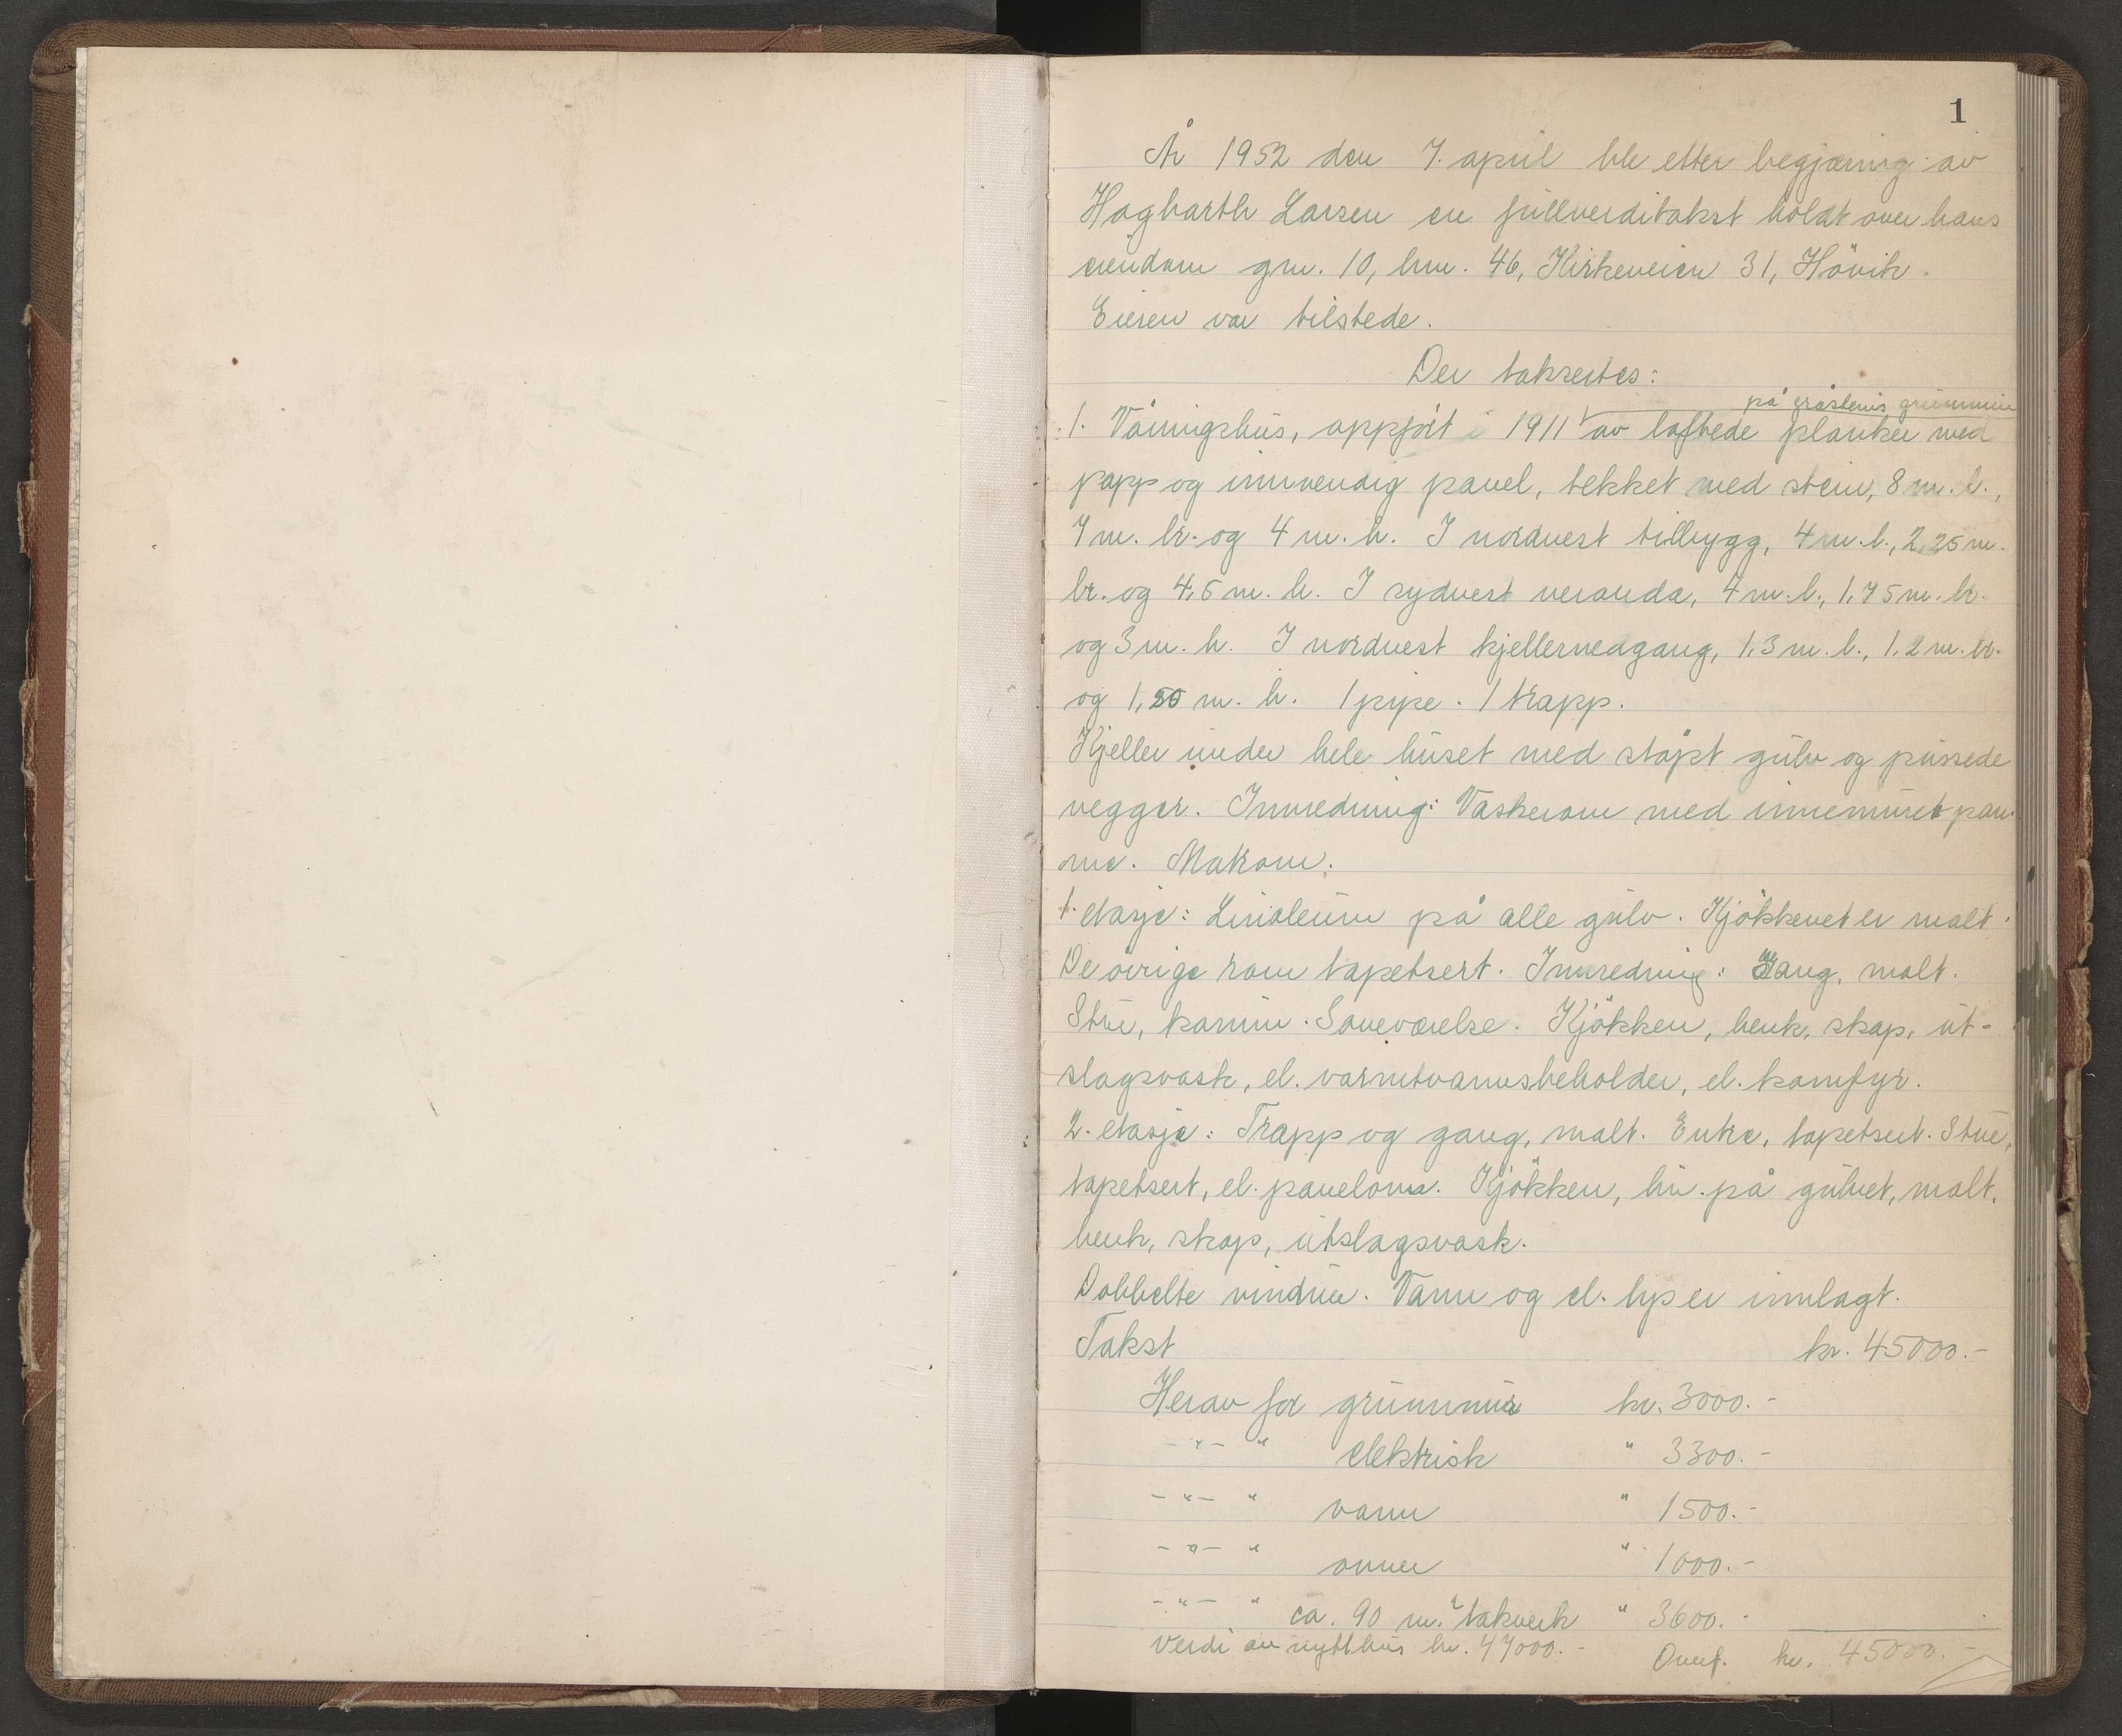 1
År 1952 den 7. april ble etter begjæring av
Hagbarth Larsen en fullverditakst holdt over hans
eiendom gnr. 10, bnr. 46, Kirkeveien 31, Hövik.
Eieren var tilstede.
Der taksertes:
på gråsteins grunnmur
1. Våningshus, oppført i 1911 av laftede planker med
papp og innvendig panel, tekket med stein, 8 m. l.,
7 m. br. og 4 m. h. I nordvest tilbygg, 4 m. l., 2,25 m.
br. og 4,5 m. h. I sydvest veranda, 4 m. l., 1,75 m. br.
og 3 m. h. I nordvest kjellernedgang, 1,3 m. l., 1,2 m. br.
og 1,50 m. h. 1 pipe. 1 trapp.
Kjeller under hele huset med støpt gulv og pussede
vegger. Innredning: Vaskerom med innemuret pan-
ne. Matrom.
1. etasje: Linoleum på alle gulv. Kjökkenet er malt.
De övrige rom tapetsert. Innredning: Gang, malt.
Stue, kamin. Soveværelse. Kjökken, benk, skap, ut-
slagsvask, el. varmtvannsbeholder, el. komfyr.
2. etasje: Trapp og gang, malt. Entre, tapetsert. Stue,
tapetsert, el. panelovn. Kjökken, lin. på gulvet, malt,
benk, skap, utslagsvask.
Dobbelte vinduer. Vann og el. lys er innlagt.
Takst kr. 45000.-
Herav for grunnmur kr. 3000.-
-"- " elektrisk " 3300.-
-"- " vann " 1500.-
-"- " ovner " 1000.-
-"- " ca. 90 m.² takverk " 3600.-
Verdi av nytt hus kr. 47000.- Overf. kr. 45000.-